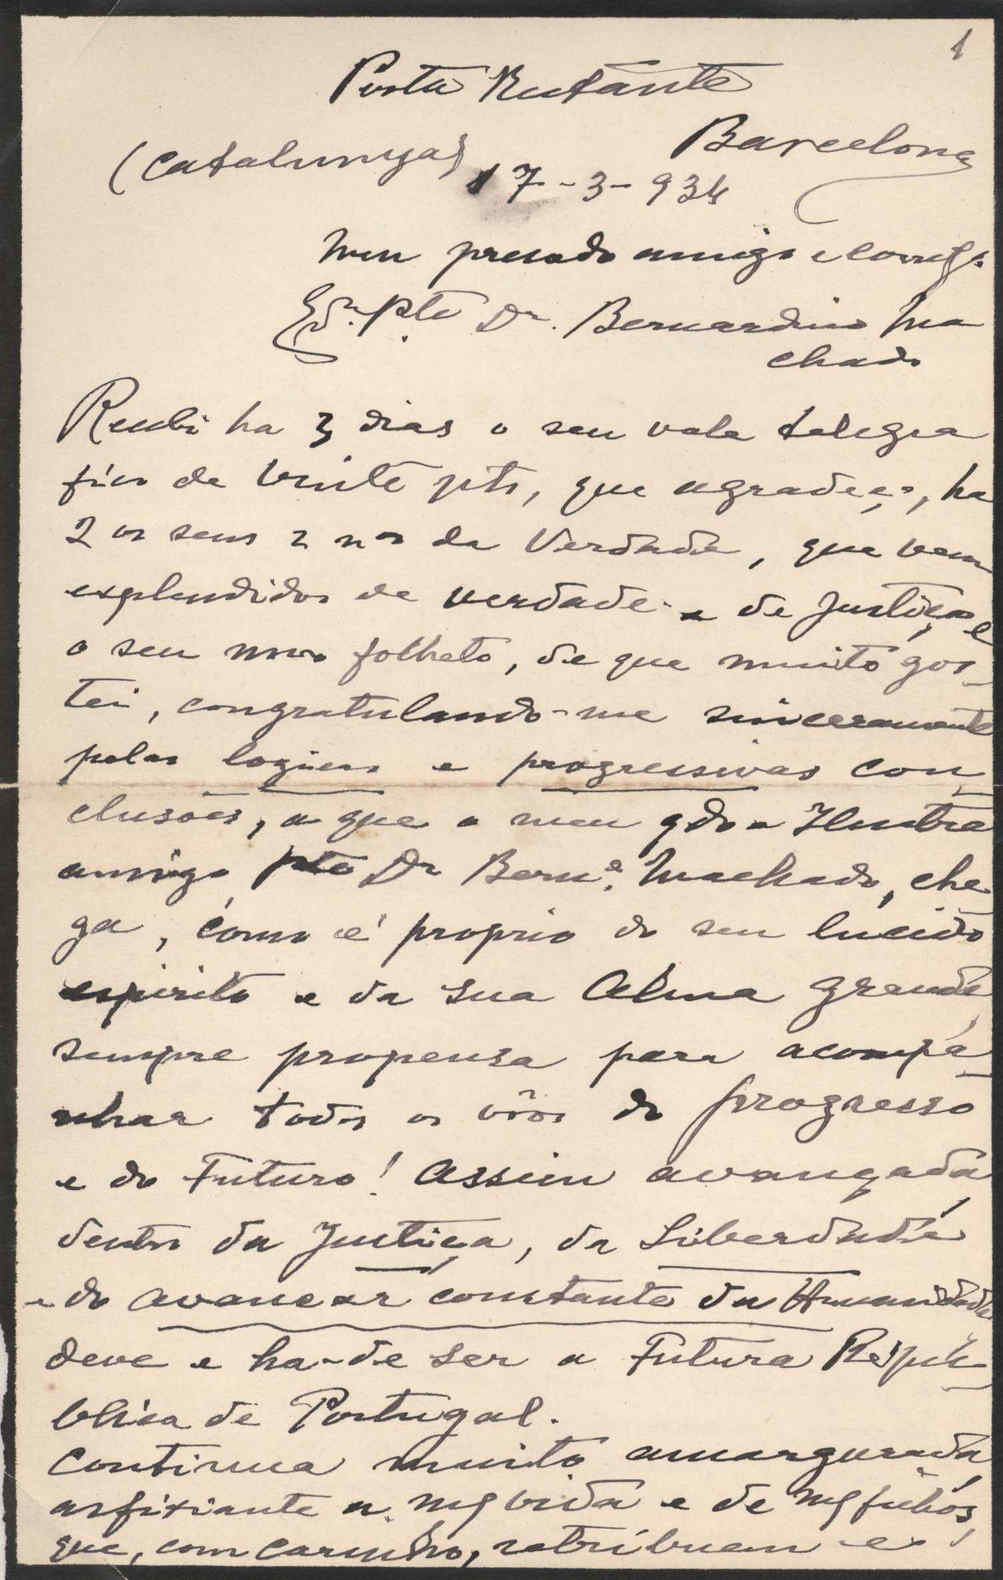 1
Posta Restante
Barcelona
(Catalunya) 17-3-934
Meu presado amigo e correlg.
Exmo. Pte Dr. Bernardino Ma
chado
Recebi ha 3 dias o seu vale telegra
fico de vinte pts, que agradeço, ha
2 os seus 2 nos da Verdade, que vem
esplendidos de verdade e de Justiça, e
o seu novo folheto, de que muito gos-
tei, congratulando-me sinceramente
pelas logicas e progressivas con-
clusões, a que o meu qdo e Ilustre
amigo Pte Dr Bernº. Machado, che
ga, como é proprio do seu lucido
espirito e da sua Alma grande,
sempre propensa para acompa-
nhar todos os vôos do progresso
e do Futuro! Assim avançada,
dentro da Justiça, da Liberdade
e do avancar constante da Humanidade
deve e ha-de ser a Futura Repú-
blica de Portugal.
Continua muito amargurada,
asfixiante a mª vida e de meus filhos,
que, com carinho, retribuem e